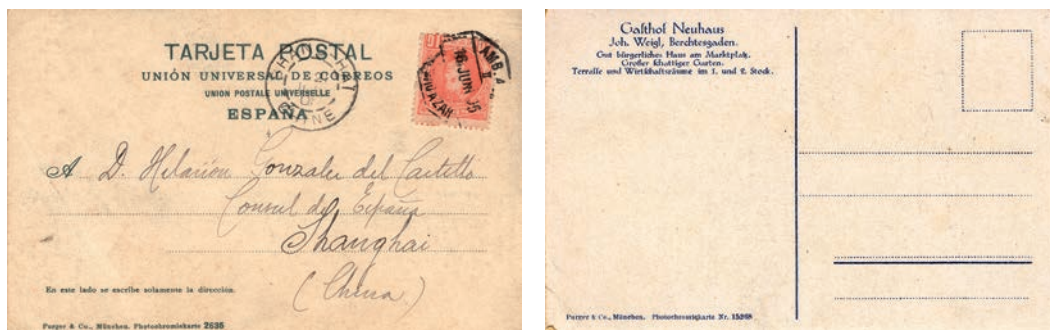 TARJETA POSTAL
UNIÓN UNIVERSAL DE CORREOS
UNION POSTALE UNIVERSELLE
ESPAÑA
CHINE
AMB. 4
16 JUN 05
A D. Hilarión Gonzalez del Castillo
Consul de España
Shanghai
(China)
En este lado se escribe solamente la dirección.
Purger & Co., München. Photochromiekarte 2636
Gasthof Neuhaus
Joh. Weigl, Berchtesgaden.
Gut bürgerliches Haus am Marktplatz.
Großer schattiger Garten.
Terrasse und Wirtschaftsräume im 1. und 2. Stock.
Purger & Co., München. Photochromiekarte Nr.